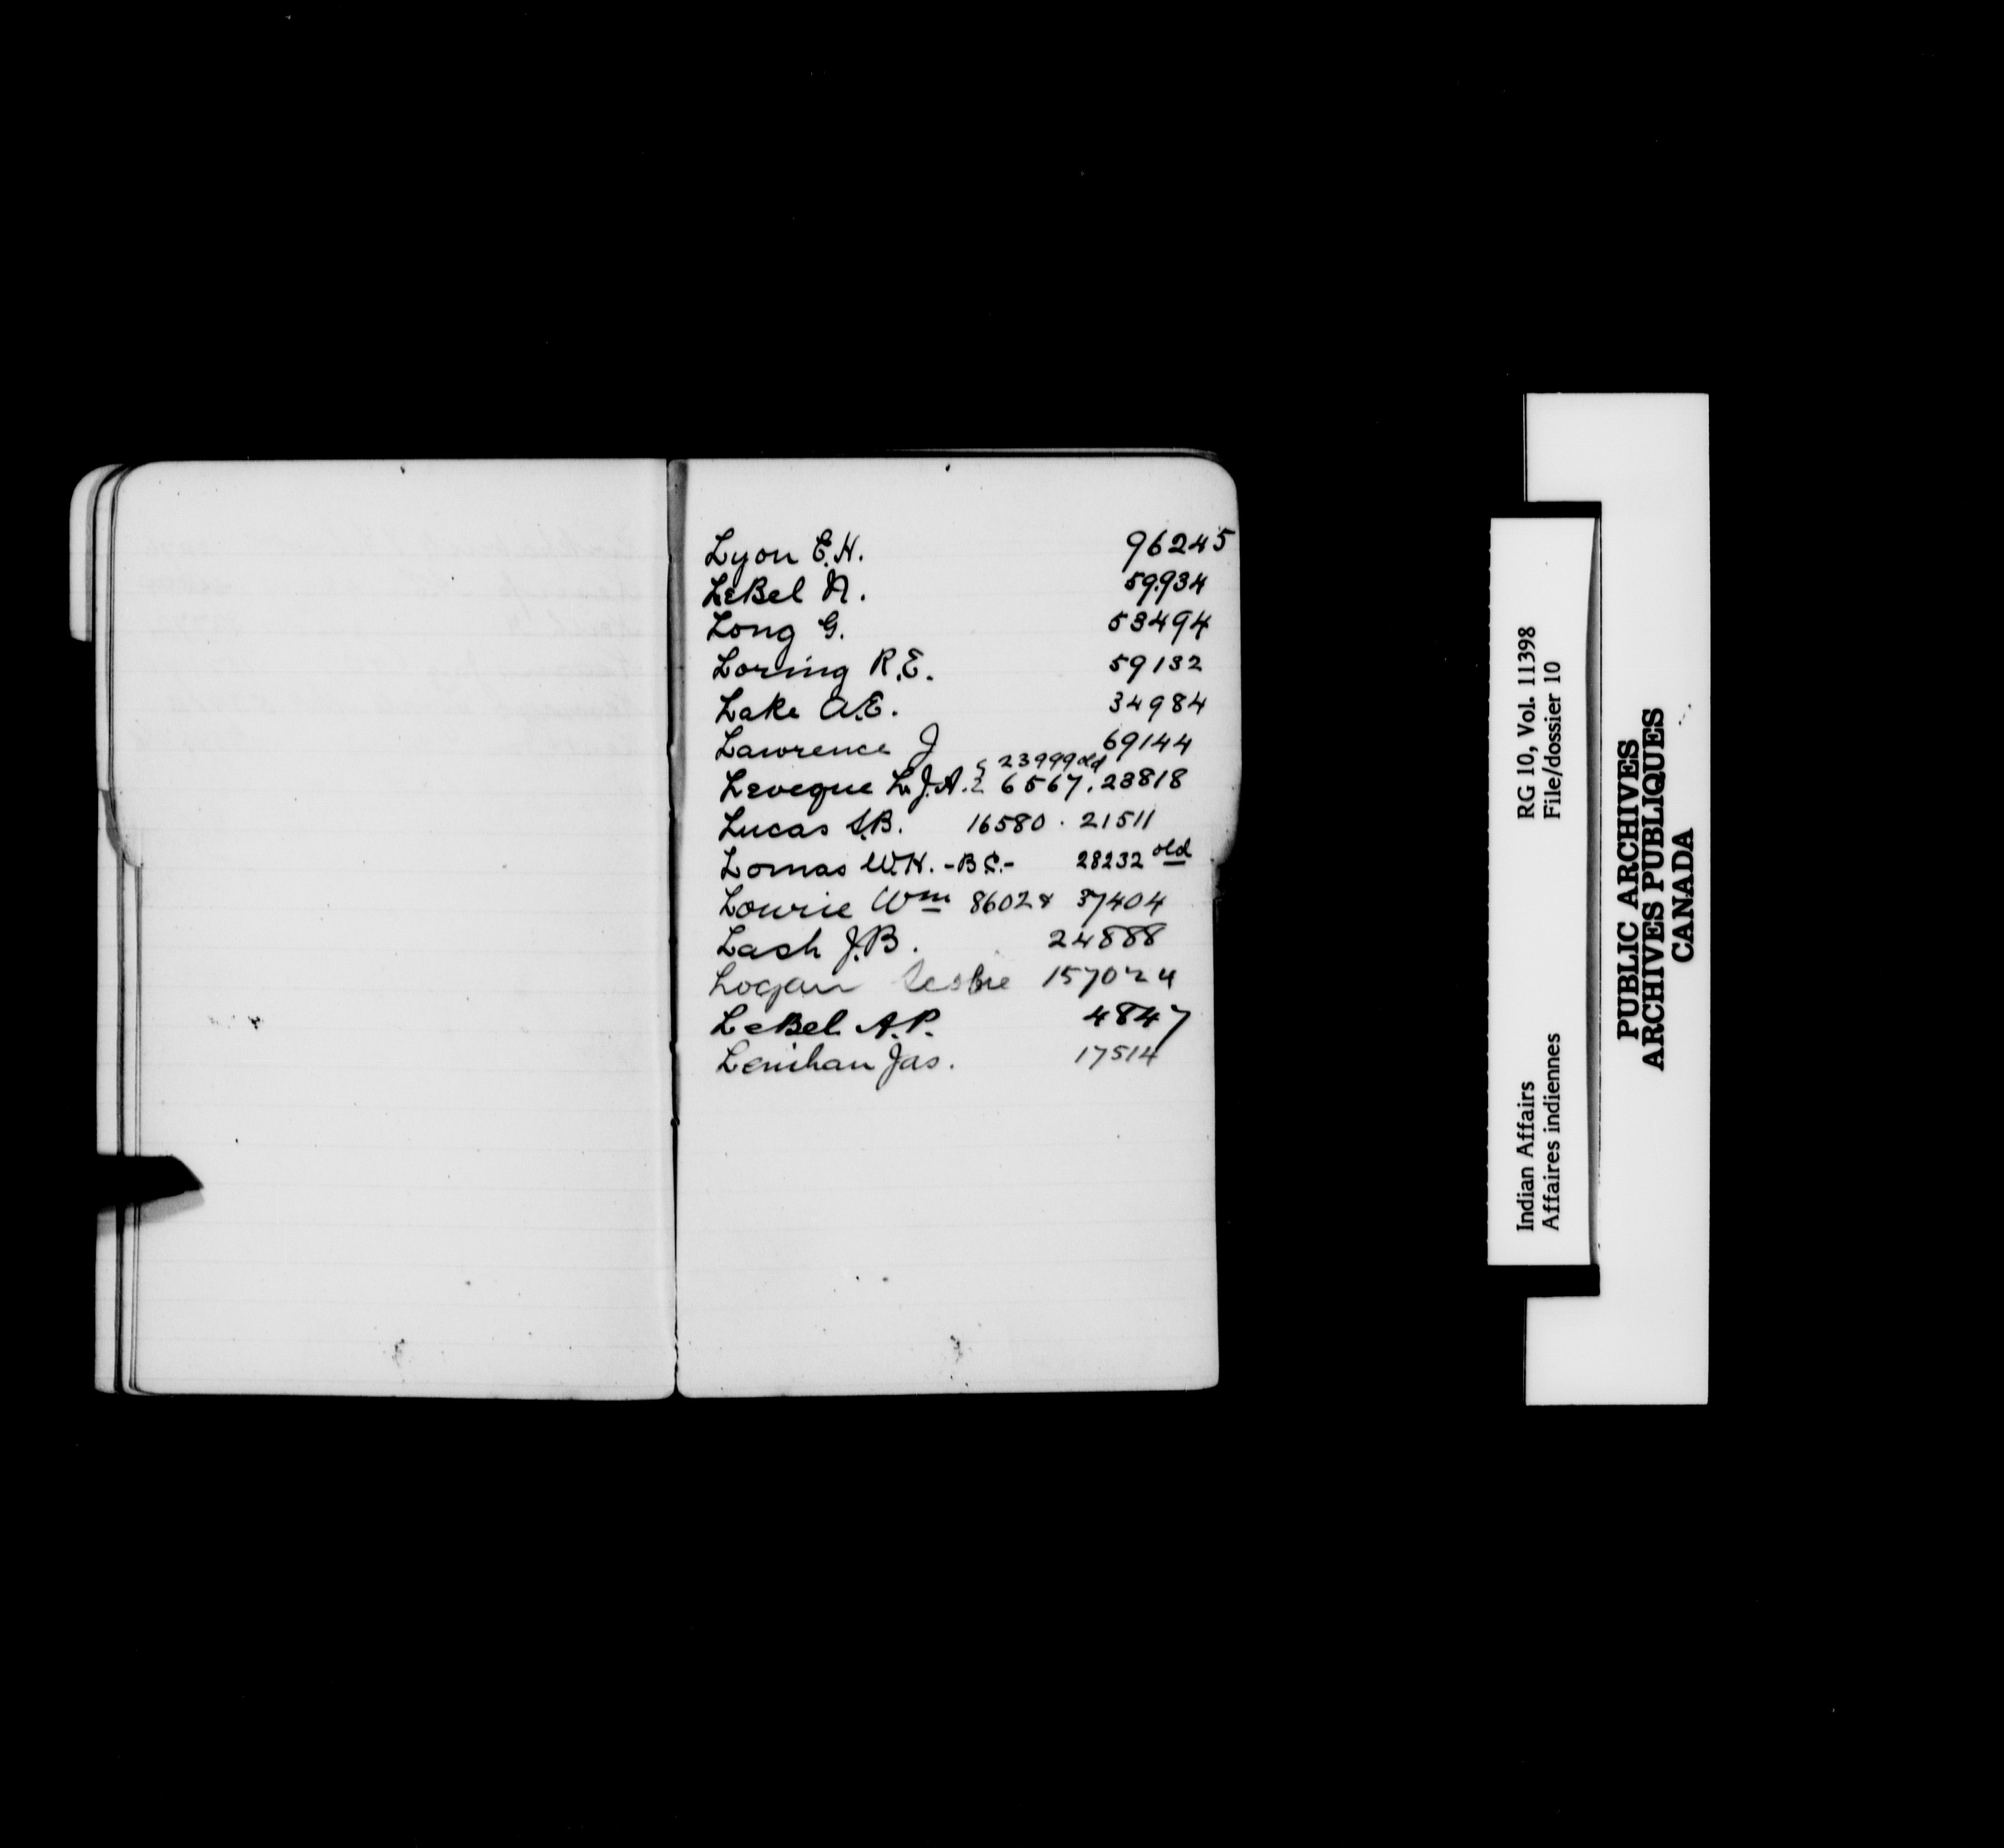 Lyon E.H. 96245
LeBel N. 59934
Long G. 53494
Loring R.E. 59132
Lake A.E. 34984
Lawrence J 69144
23999 old
Leveque L.J.A. 6567. 23818
Lucas S.B. 16580 . 21511
Lomas W.H. -B.C.- 28232 old
Lowrie Wm 8602 & 37404
Lash J.B. 24888
Logan Leslie 157024
LeBel A.P. 4847
Lenihan Jas. 17514
Indian Affairs RG 10, Vol. 11398
Affaires indiennes File/dossier 10
PUBLIC ARCHIVES
ARCHIVES PUBLIQUES
CANADA